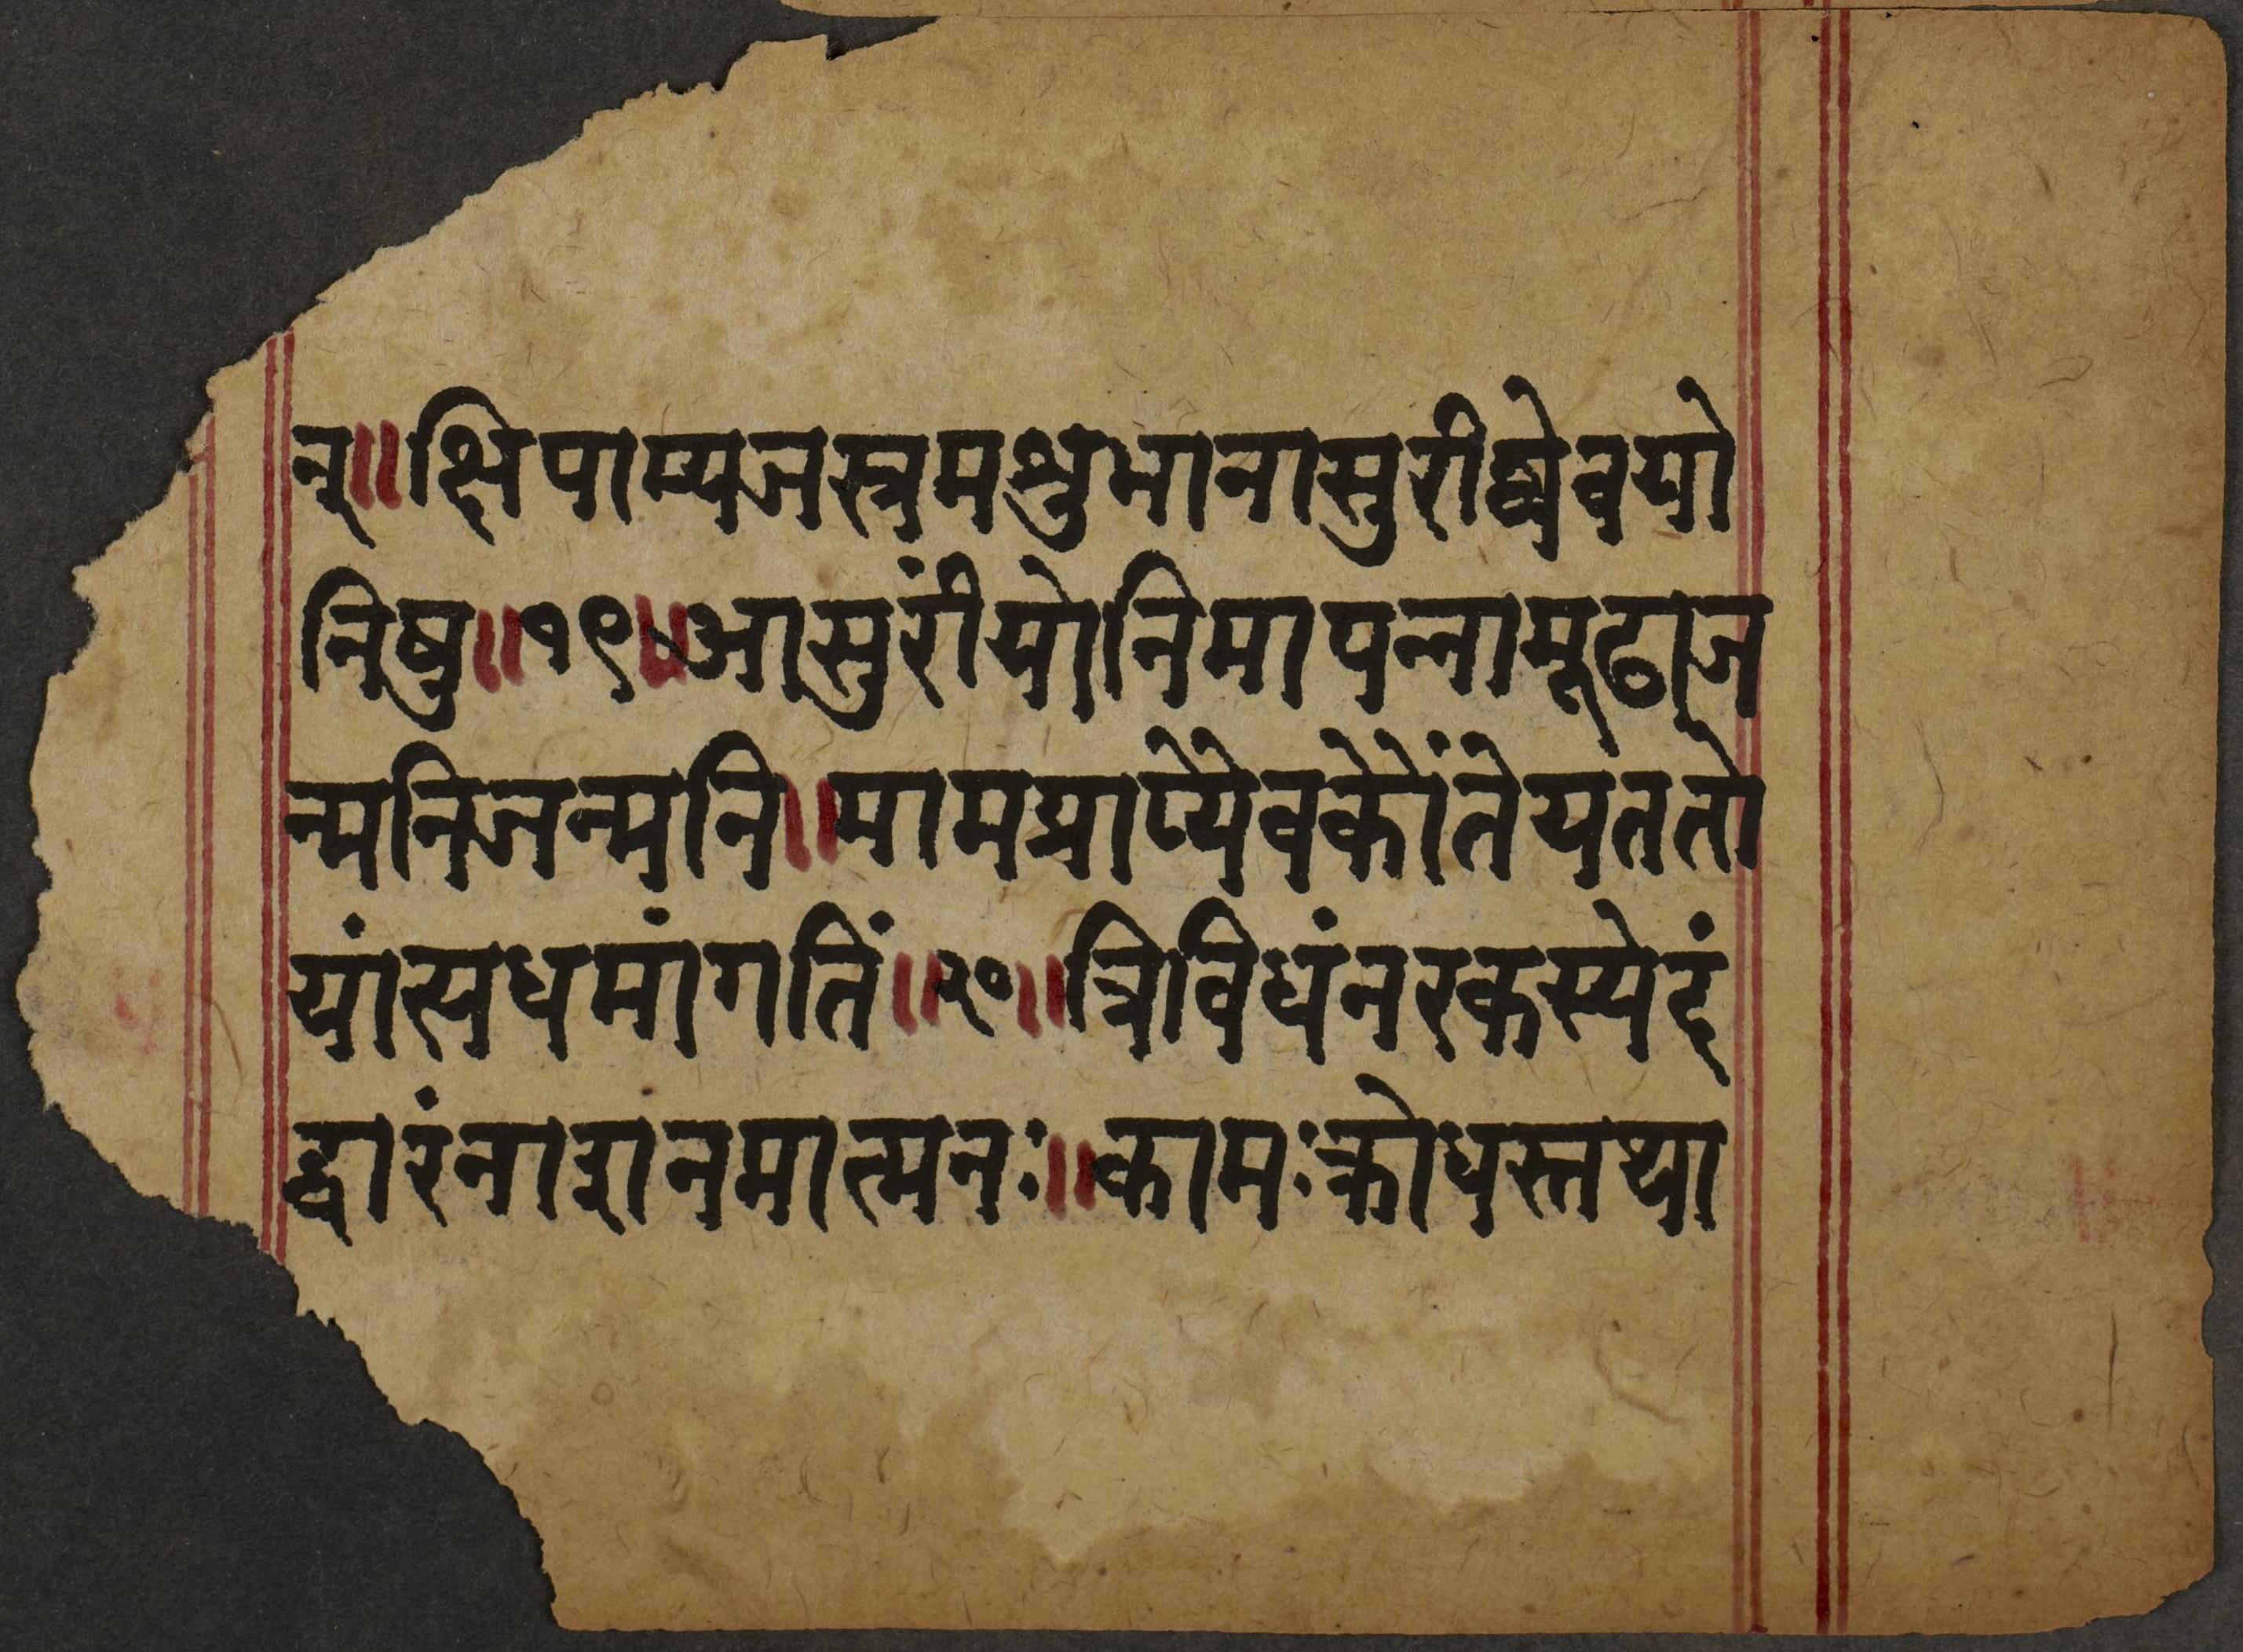 न्॥क्षिपाम्यजस्त्रमशुभानासुरीष्वेवयो
निषु॥१९॥आसुरींयोनिमापन्नामूढाज
न्मनिजन्मनि॥मामप्राप्यैवकौंतेयततो
यांत्यधमांगतिं॥२०॥त्रिविधंनरकस्येदं
द्वारंनाशनमात्मनः॥कामःक्रोधस्तथा